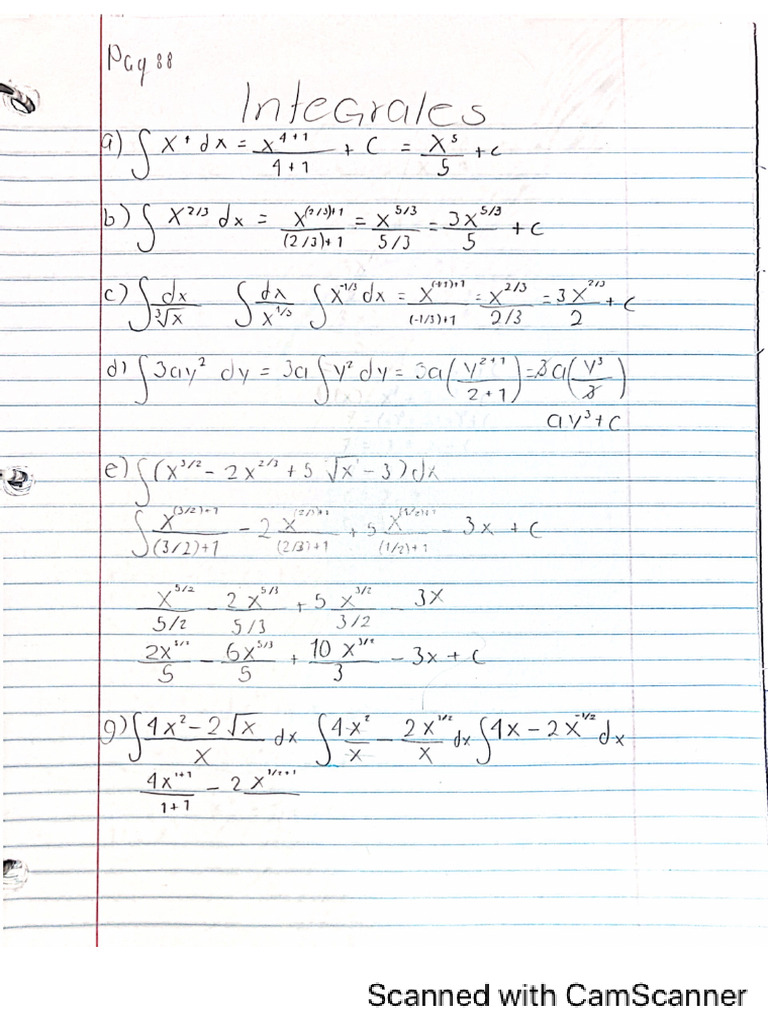 Pag 88
Integrales
a) ∫ x⁴ dx = x^(4+1)/(4+1) + C = x⁵/5 + c
b) ∫ x^(2/3) dx = x^((2/3)+1)/((2/3)+1) = x^(5/3)/(5/3) = 3x^(5/3)/5 + c
c) ∫ dx/∛x ∫ dx/x^(1/3) ∫ x^(-1/3) dx = x^((-1/3)+1)/((-1/3)+1) = x^(2/3)/(2/3) = 3x^(2/3)/2 + c
d) ∫ 3ay² dy = 3a ∫ y² dy = 3a (y^(2+1)/(2+1)) = 3a (y³/3)
ay³ + c
e) ∫ (x^(3/2) - 2x^(2/3) + 5 √x - 3) dx
∫ x^((3/2)+1)/((3/2)+1) - 2 x^((2/3)+1)/((2/3)+1) + 5 x^((1/2)+1)/((1/2)+1) - 3x + C
x^(5/2)/(5/2) - 2x^(5/3)/(5/3) + 5 x^(3/2)/(3/2) - 3x
2x^(5/2)/5 - 6x^(5/3)/5 + 10 x^(3/2)/3 - 3x + C
g) ∫ (4x² - 2√x)/x dx ∫ 4x²/x - 2x^(1/2)/x dx ∫ 4x - 2x^(-1/2) dx
4x^(1+1)/(1+1) - 2 x^(1/2+1)
Scanned with CamScanner